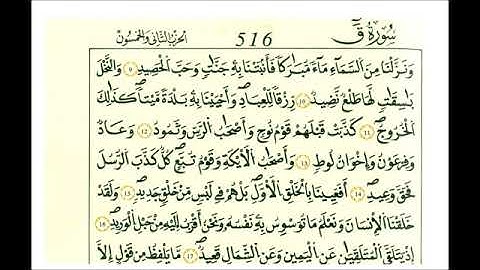 سورة ق 516 الحزب الثاني والخمسون
ونزلنا من السماء ماء مبركا فأنبتنا به جنت وحب الحصيد ٩ والنخل
باسقت لها طلع نضيد ١٠ رزقا للعباد وأحيينا به بلدة ميتا كذلك
الخروج ١١ كذبت قبلهم قوم نوح وأصحب الرس وثمود ١٢ وعاد
وفرعون وإخوان لوط ١٣ وأصحب الأيكة وقوم تبع كل كذب الرسل
فحق وعيد ١٤ أفعيينا بالخلق الأول بل هم في لبس من خلق جديد ١٥ ولقد
خلقنا الإنسان ونعلم ما توسوس به نفسه ونحن أقرب إليه من حبل الوريد ١٦
إذ يتلقى المتلقيان عن اليمين وعن الشمال قعيد ١٧ ما يلفظ من قول إلا